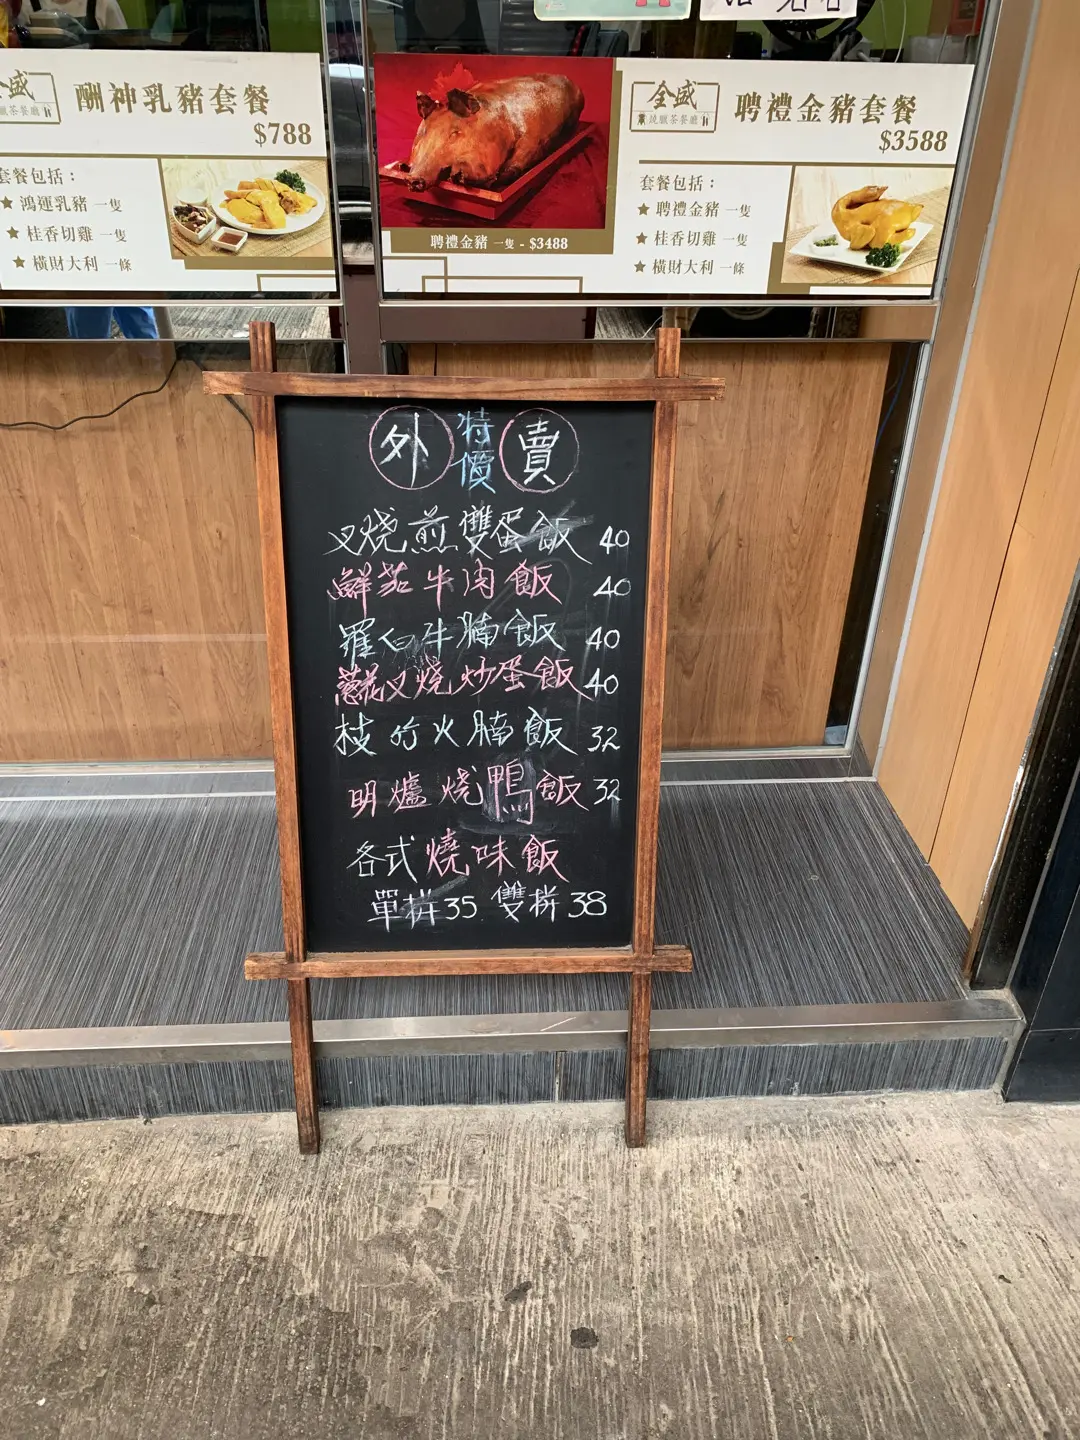 酬神乳豬套餐
$788
套餐包括：
★ 鴻運乳豬 一隻
★ 桂香切雞 一隻
★ 橫財大利 一條
聘禮金豬 一隻 - $3488
全盛
燒臘茶餐廳
聘禮金豬套餐
$3588
套餐包括：
★ 聘禮金豬 一隻
★ 桂香切雞 一隻
★ 橫財大利 一條
外特價賣
叉烧煎雙蛋飯 40
鮮茄牛肉飯 40
羅白牛腩飯 40
蔥花叉燒炒蛋飯 40
枝竹火腩飯 32
明爐烧鴨飯 32
各式燒味飯
單拼35 雙拼38